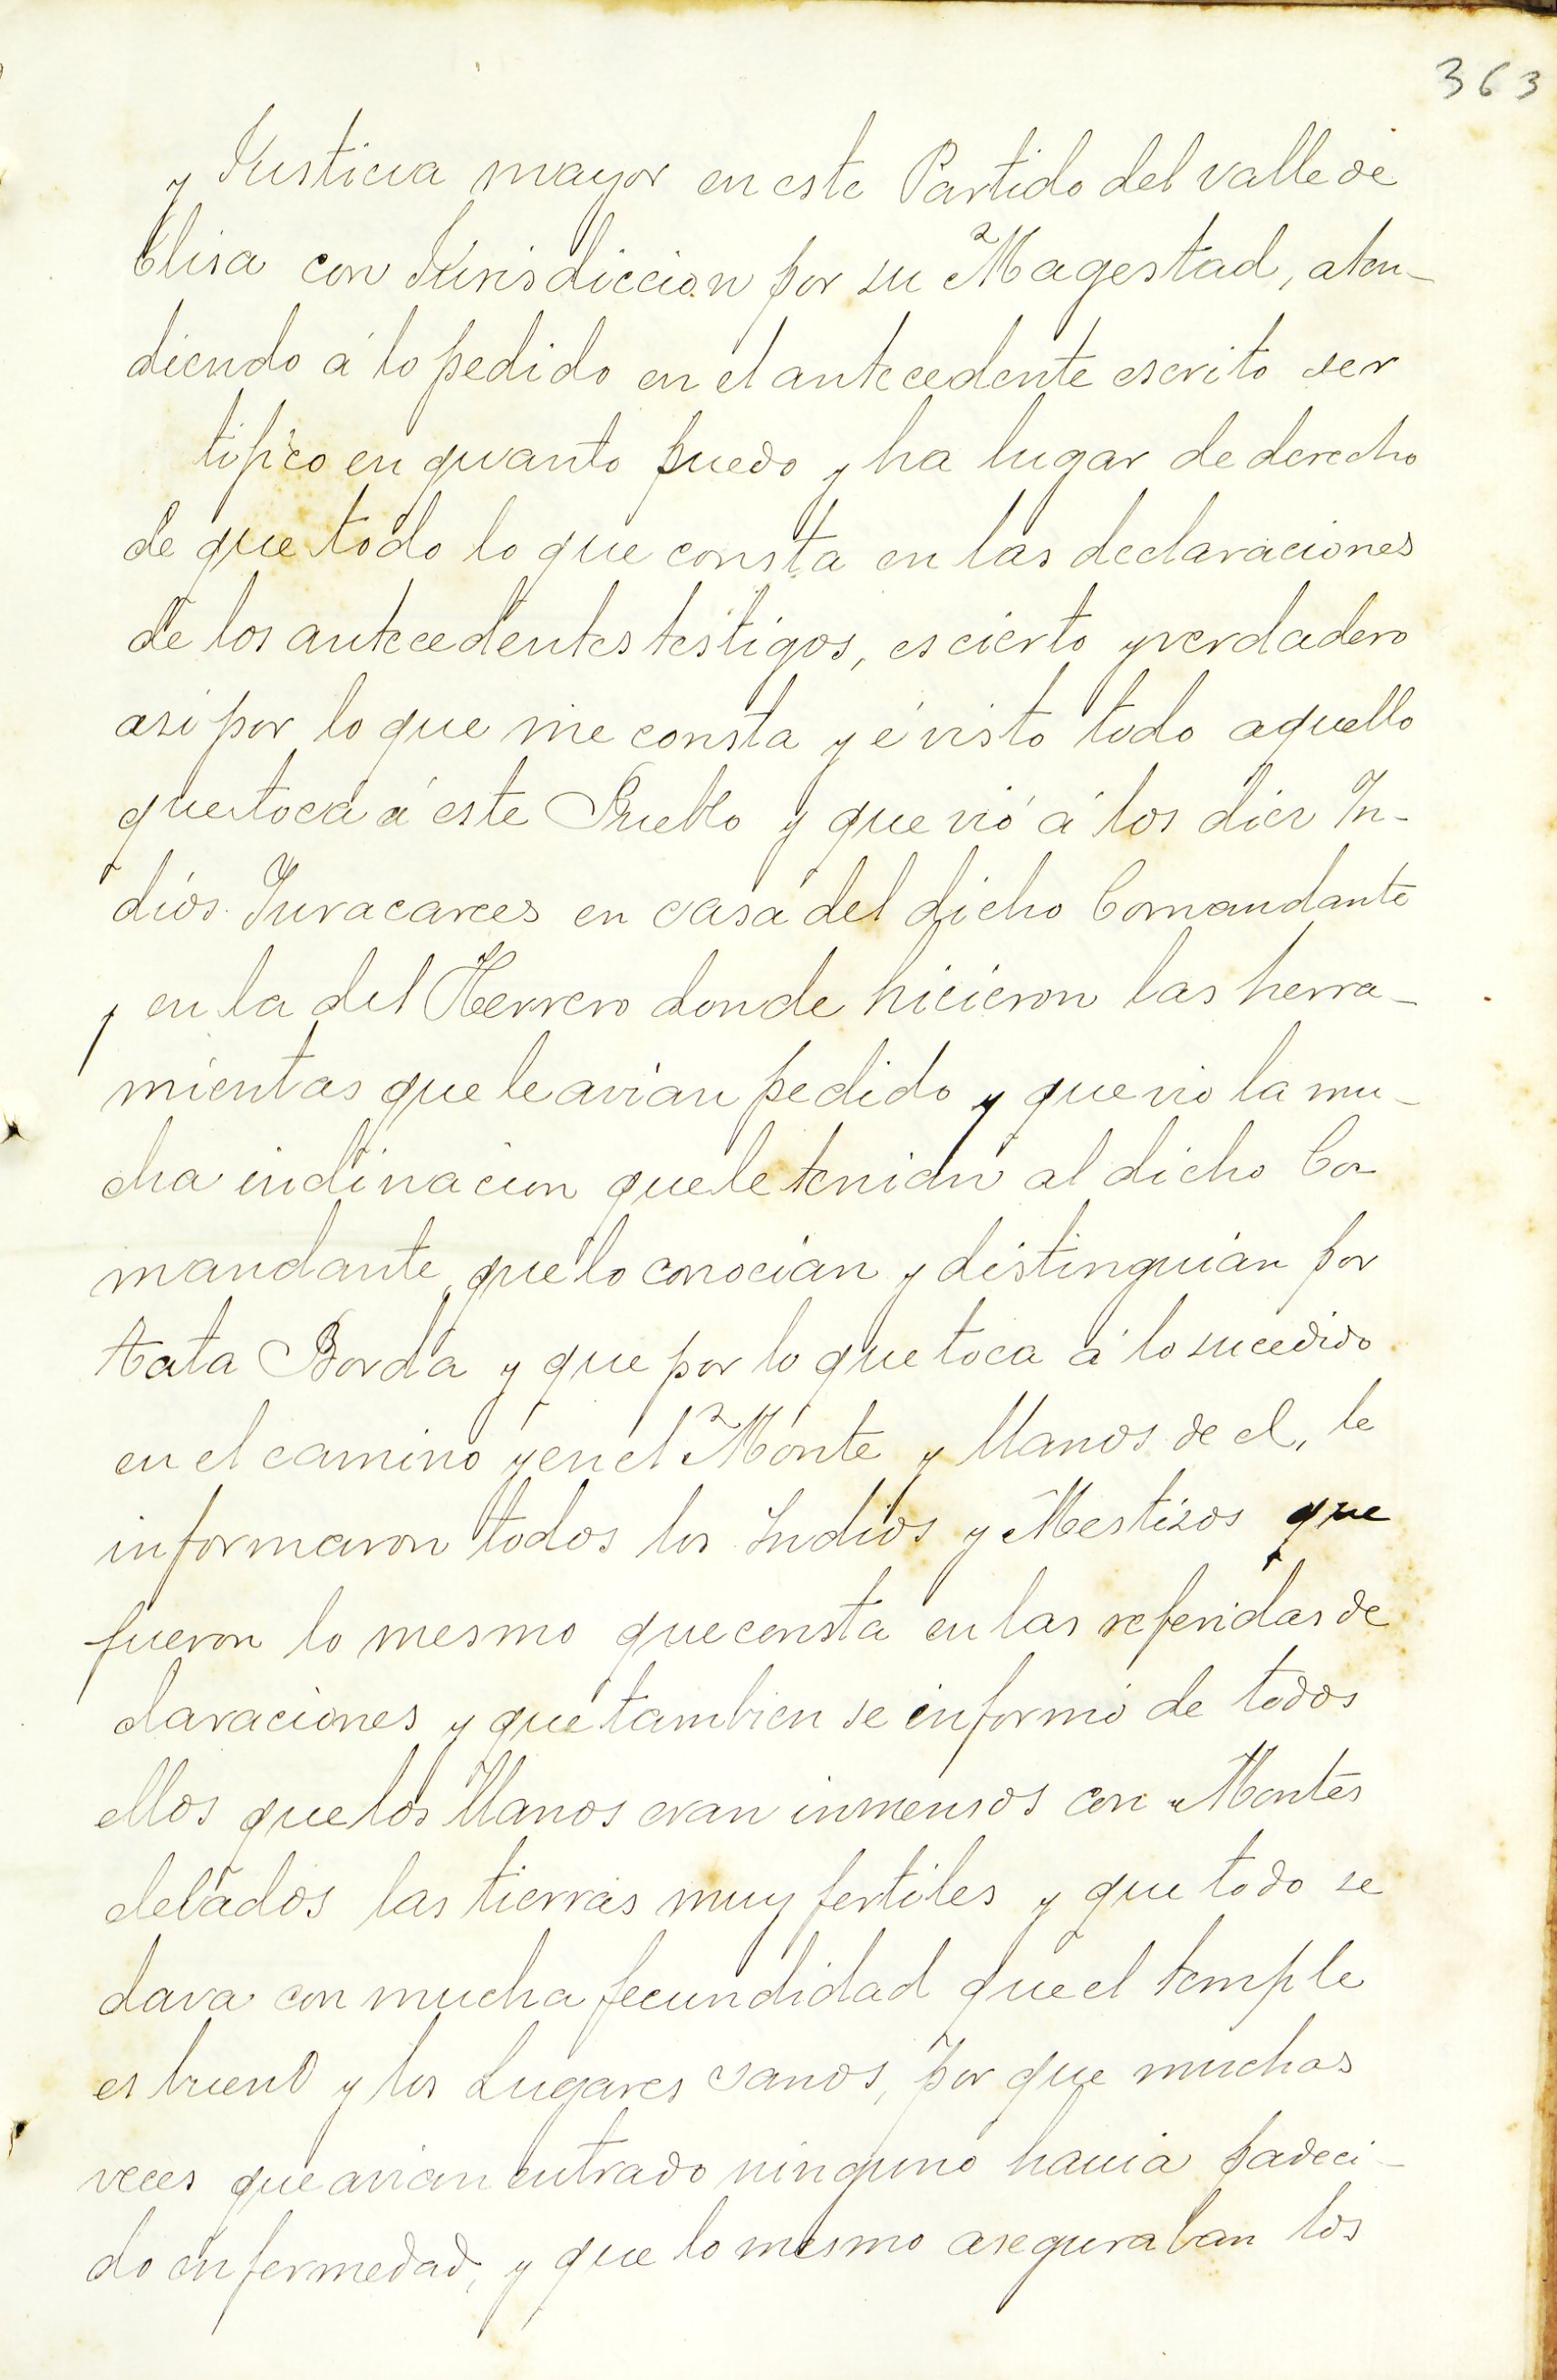 363
y Justicia mayor en este Partido del valle de
Clisa con Jurisdiccion por su Magestad, aten-
diendo á lo pedido en el antecedente escrito ser
tifico en quanto puedo y ha lugar de derecho
de que todo lo que consta en las declaraciones
de los antecedentes testigos, es cierto y verdadero
asi por lo que me consta y é visto todo aquello
que toca á este Pueblo y que vió á los diez In-
dios Yuracarees en casa del dicho Comandante
y en la del Herrero donde hicieron las herra-
mientas que le avian pedido y que vio la mu-
cha indinacion que le tenian al dicho Co-
mandante, que lo conocian y distinguian por
tata Borda y que por lo que toca á lo sucedido
en el camino y en el Monte y llanos de el, le
informaron todos los Indios y Mestizos que
fueron lo mesmo que consta en las referidas de
claraciones y que tambien se informó de todos
ellos que los llanos eran inmensos con Montes
delados las tierras muy fertiles y que todo se
dava con mucha fecundidad que el temple
es bueno y los Lugares sanos, por que muchas
veces que avian entrado ninguno havia padeci-
do enfermedad, y que lo mesmo aseguraban los